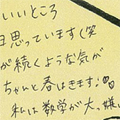 いいところ
日思っています(笑
が続くような気が
ちゃんと春はきます!
私は数学が大嫌い